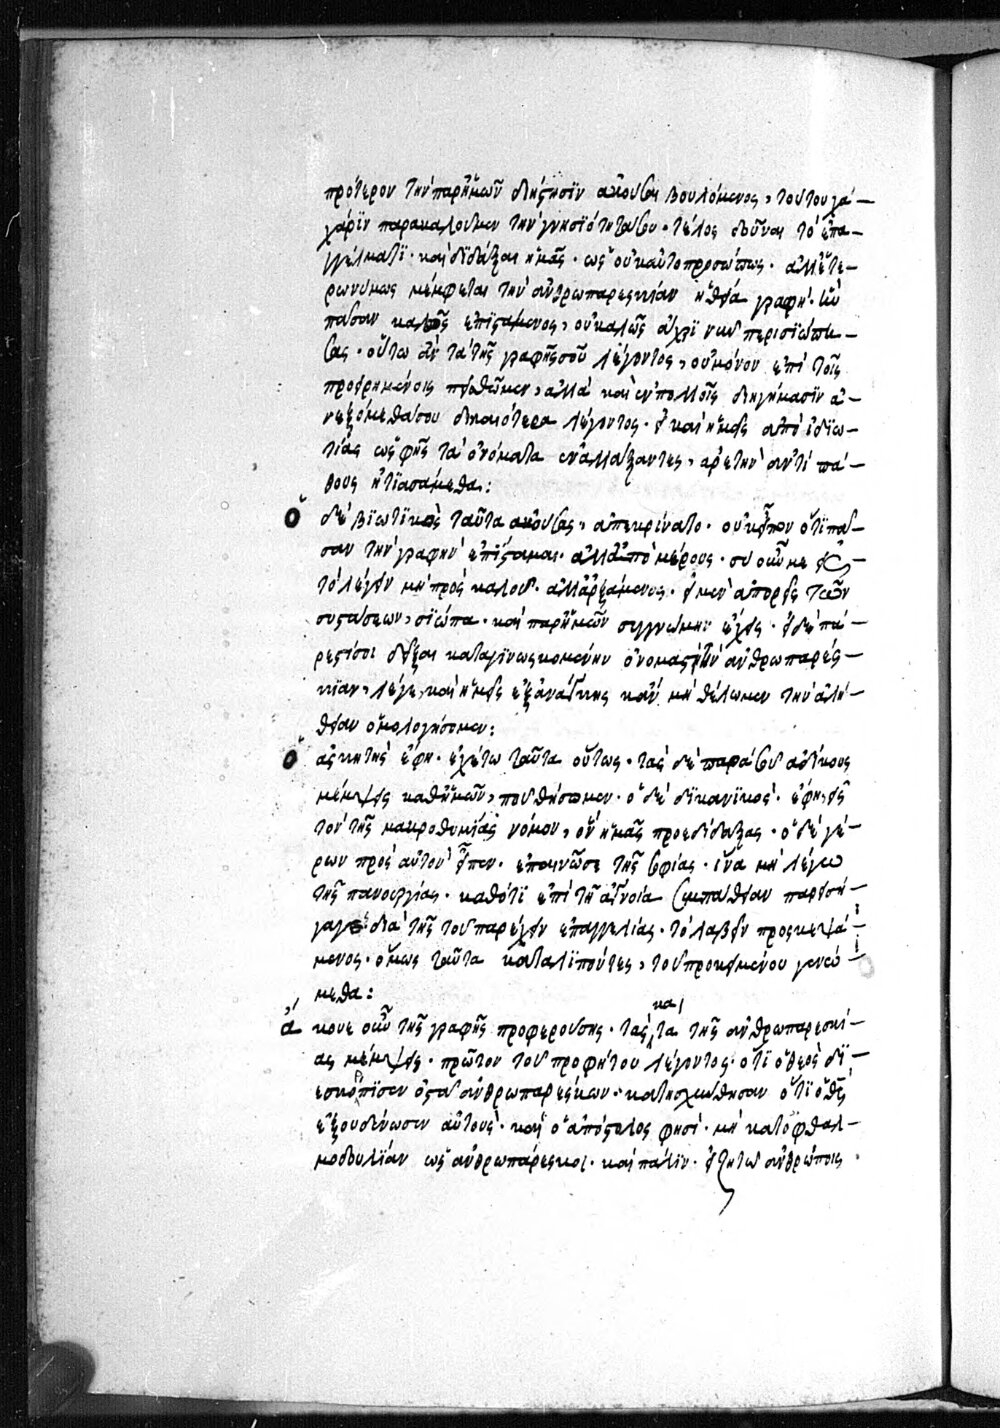 πρότερον τὴν παρ' ἡμῶν διήγησϊν ἀκοῦσαι βουλόμενος, τούτου γὰ-
χάρϊν παρακαλοῦμεν τὴν γνησϊότητά σου· τέλος δοῦναι τὸ ἐπα-
γγέλματϊ· καὶ διδάξαι ἡμᾶς· ὡς οὐκ αὐτοπροσώπως· ἀλλ' ἑτε-
ρωνύμως μέμφεται τὴν ἀνθρωπαρεσκίαν ἡ θεία γραφή·
πᾶσαν καλῶς ἐπιστάμενος, οὐ καλῶς ἄχρϊ νῦν περισϊώπη-
σας· οὕτω ἂν τὰ τῆς γραφῆς σου λέγοντος, οὐ μόνον ἐπὶ τοῖς
προειρημένοις πεισθῶμεν, ἀλλὰ καὶ ἐν πολλοῖς διηγήμασϊν ἀ-
νεξόμεθά σου δικαιότερα λέγοντος· εἰ καὶ ἡμεῖς ἀπὸ ἰδϊω-
τίας ὡς φῂς τὰ ὀνόματα ἐναλλάξαντες, ἀρετὴν ἀντὶ πά-
θους ᾐτϊασάμεθα:
ὁ δὲ βϊωτϊκὸς ταῦτα ἀκούσας, ἀπεκρίνατο· οὐκ εἶπον ὅτϊ πᾶ-
σαν τὴν γραφὴν ἐπίσταμαι· ἀλλ' ἀπὸ μέρους· σὺ οὖν με εἰς
τὸ λέγειν μὴ προσκαλοῦ· ἀλλ' ἀρξάμενος· εἰ μὲν ἀπορεῖς τῶν
συστάσεων, σϊώπα· καὶ παρ' ἡμῶν συγγνώμην ἔχεις· εἰ δὲ πά-
ρεστί σοι δεῖξαι καταγϊνωσκομένην ὀνομαστὶ τὴν ἀνθρωπαρέσ-
κϊαν, λέγε, καὶ ἡμεῖς ἐξ ἀνάγκης κἂν μὴ θέλωμεν τὴν ἀλή-
θειαν ὁμολογήσομεν:
ὁ ἀσκητὴς ἔφη· ἐχέτω ταῦτα οὕτως· τὰς δὲ παρὰ σοῦ ἀδίκους
μέμψεις καθ' ἡμῶν, ποῦ θήσωμεν· ὁ δὲ δϊκανϊκὸς· ἔφη, εἰς
τὸν τῆς μακροθυμίας νόμον, ὃν ἡμᾶς προεδίδαξας· ὁ δὲ γέ-
ρων πρὸς αὐτὸν εἶπεν· ἐπαινῶ σε τῆς σοφίας· ἵνα μὴ λέγω
τῆς πανουργίας· καθότϊ ἐπὶ τῇ ἀγνοία συμπάθειαν παρεισή-
γαγε διὰ τῆς τοῦ παρέχειν ἐπαγγελίας· τὸ λαβεῖν προσκεψά-
μενος· ὅμως ταῦτα καταλϊπόντες, τοῦ προκειμένου γενώ-
μεθα:
ἄκουε οὖν τῆς γραφῆς προφερούσης· τὰς κατὰ τῆς ἀνθρωπαρεσκί-
ας μέμψεις· πρῶτον τοῦ προφήτου λέγοντος· ὅτϊ ὁ θεὸς δϊ-
εσκόρπϊσεν ὀστᾶ ἀνθρωπαρέσκων· κατησχύνθησαν ὅτϊ ὁ θς
ἐξουδένωσεν αὐτούς· καὶ ὁ ἀπόστολος φησί· μὴ κατ' ὀφθαλ-
μοδουλείαν ὡς ἀνθρωπάρεσκοι· καὶ πάλϊν· εἰ ζητῶ ἀνθρώποις